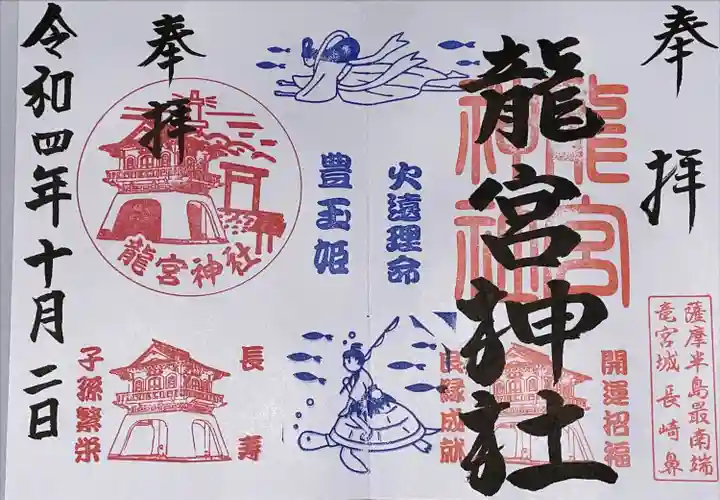 奉拝
龍宮神社
龍宮神社
薩摩半島最南端
竜宮城 長崎鼻
開運招福
良縁成就
火遠理命
豊玉姫
奉拝
龍宮神社
長寿
子孫繁栄
令和四年十月二日